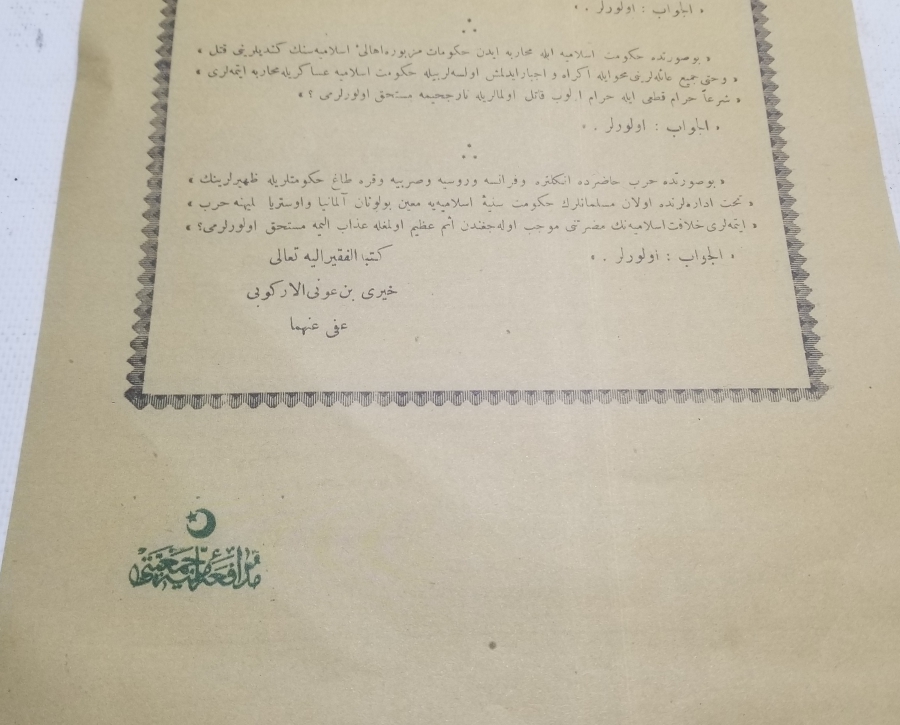 « الجواب : اولورلر . »
« بوصورتده حكومت اسلاميه ايله محاربه ايدن حكومات مزبوره اهالئ اسلاميه سنك كنديلرينى قتل »
« وحتى جميع عائله لرينى محوايله اكراه و اجبار ايدلمش اولسه لربيله حكومت اسلاميه عساكريله محاربه ايتمه لرى »
« شرعاً حرام قطعى ايله حرام اولوب قاتل اولمالريله نارجحيمه مستحق اولورلرمى ؟ »
« الجواب : اولورلر . »
« بوصورتده حرب حاضرده انكلتره وفرانسه وروسيه وصربيه وقره طاغ حكومتلريله ظهيرلرينك »
« تحت اداره لرنده اولان مسلمانلرك حكومت سنيۀ اسلاميه يه معين بولونان آلمانيا واوستريا عليهنه حرب »
« ايتمه لرى خلافت اسلاميه نك مضرتنى موجب اوله جغندن اثم عظيم اولمغله عذاب اليمه مستحق اولورلرمى؟ »
« الجواب : اولورلر . »
كتبه الفقير اليه تعالى
خيرى بن عونى الاركوبى
عفى عنهما
مدافعۀ مليه جمعيتى